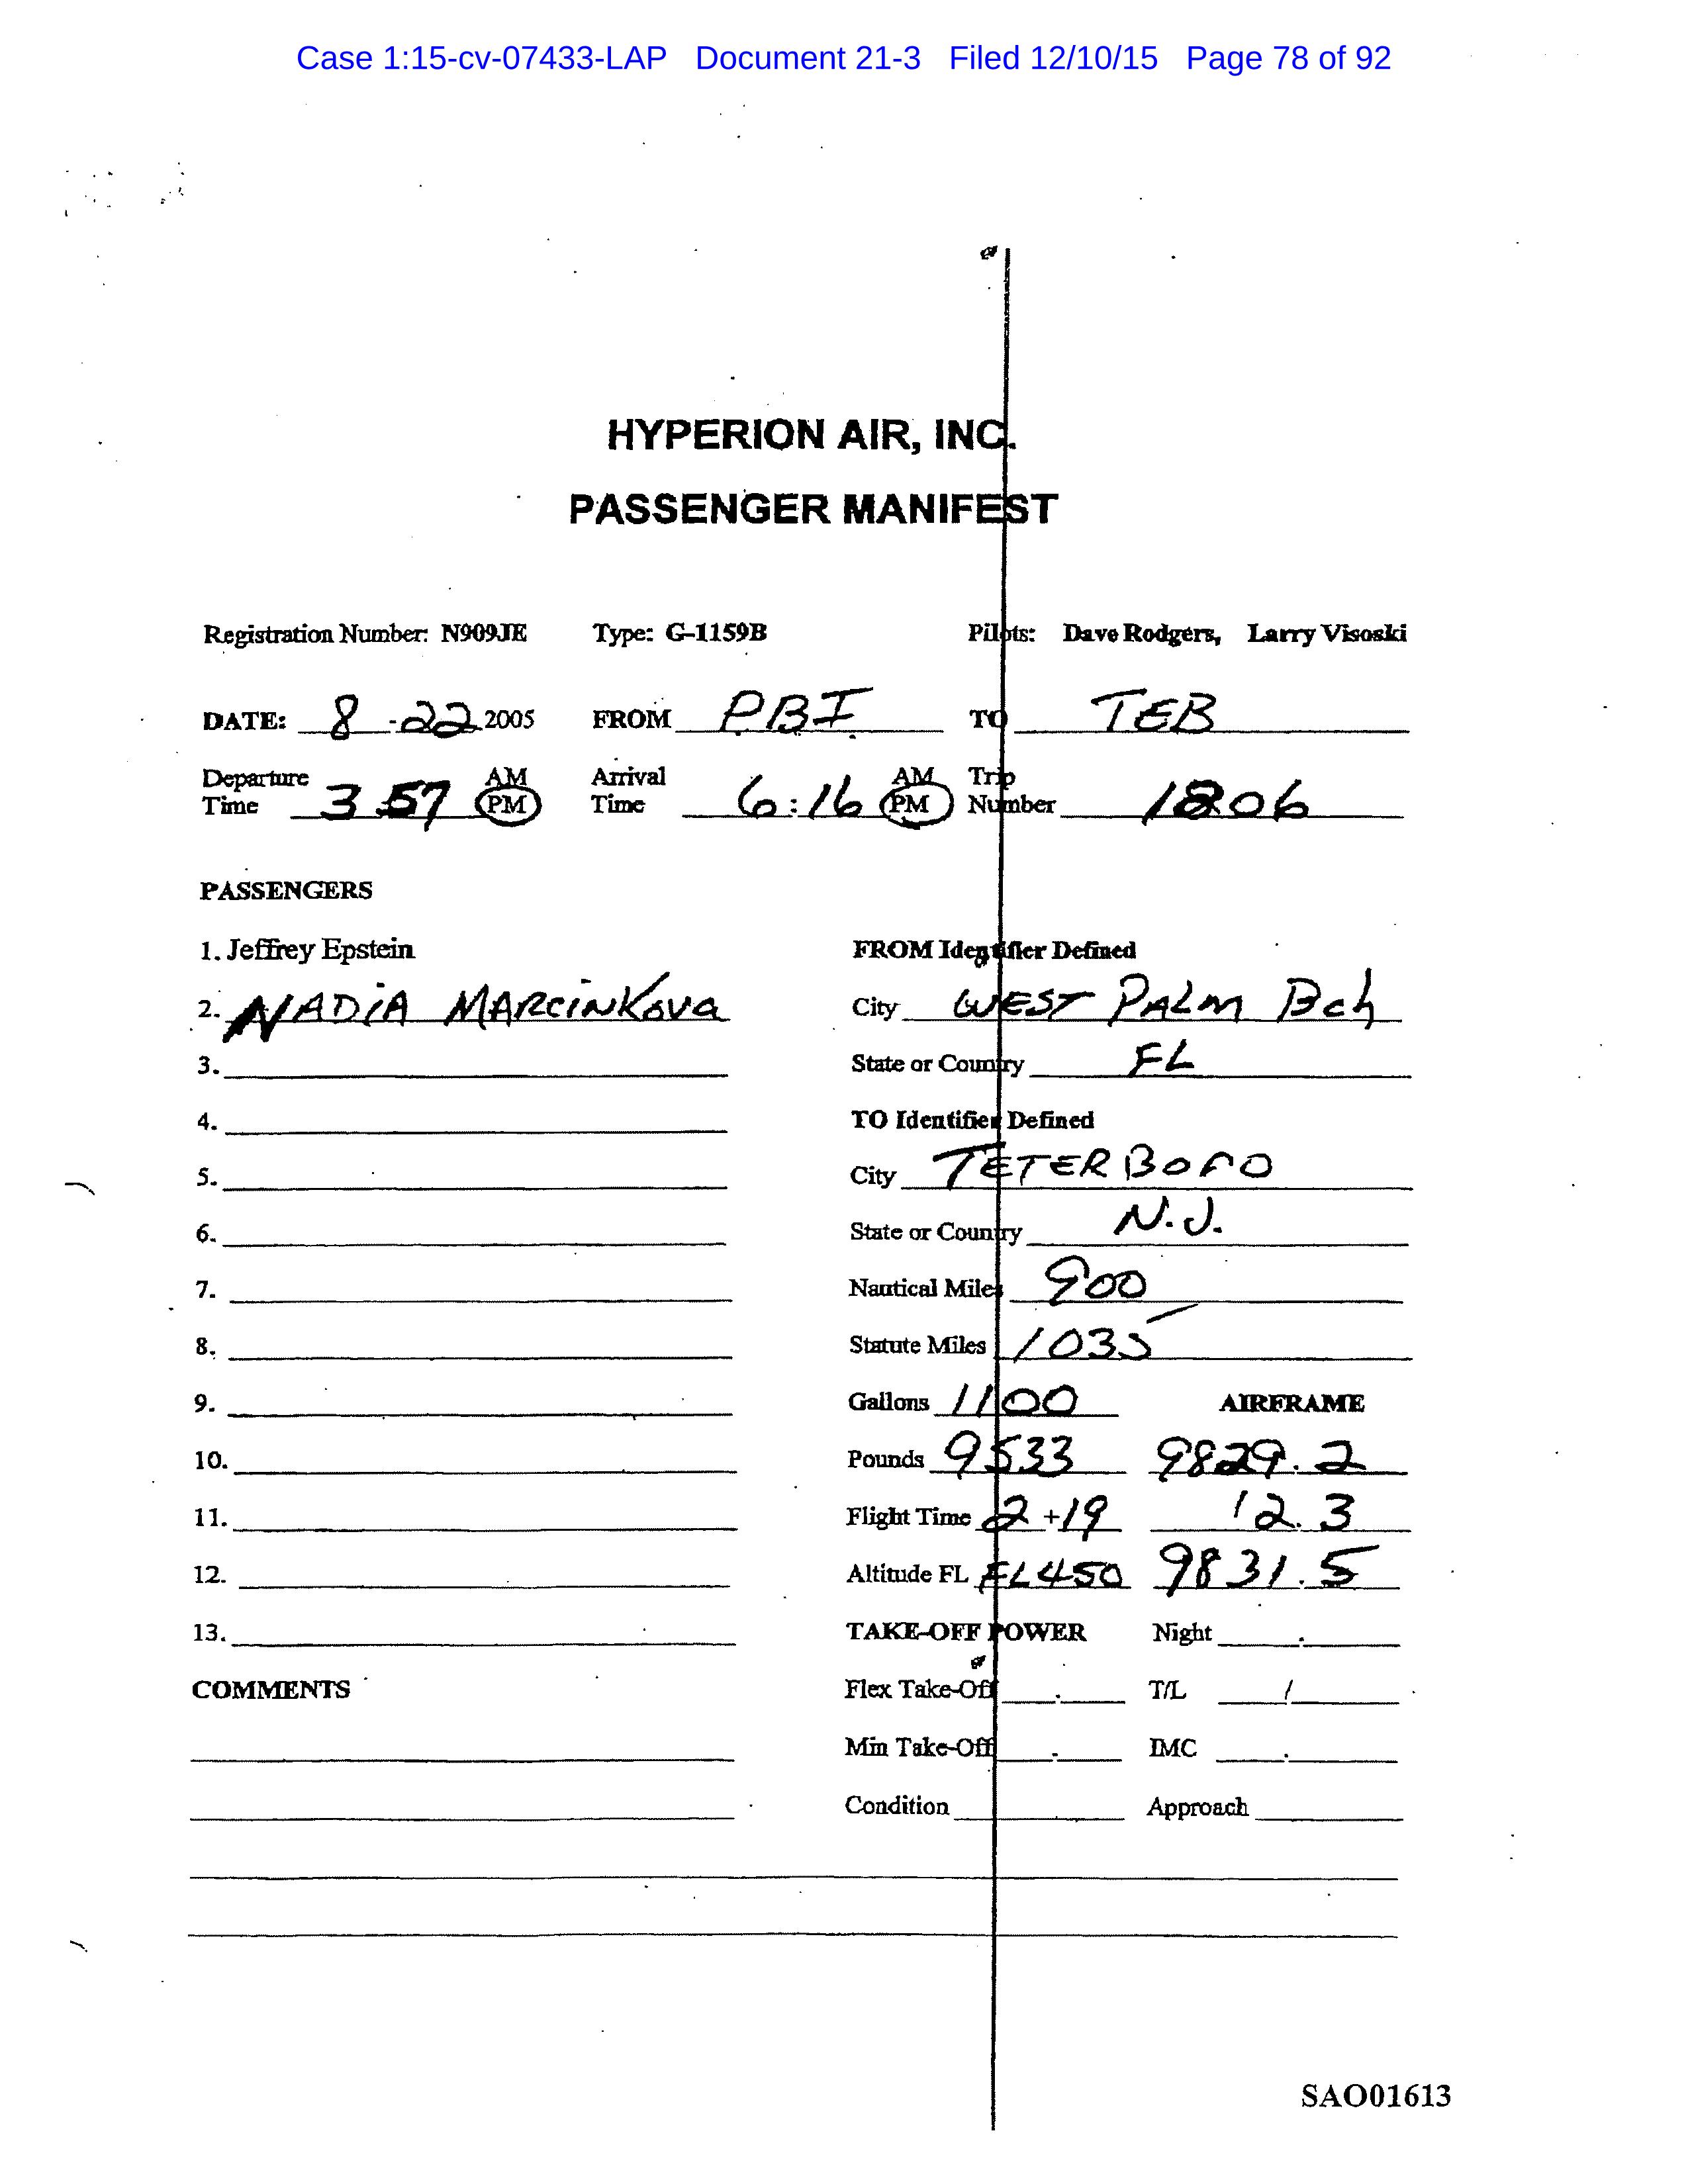 Case 1:15-cv-07433-LAP Document 21-3 Filed 12/10/15 Page 78 of 92
HYPERION AIR, INC.
PASSENGER MANIFEST
Registration Number: N909JE Type: G-1159B Pilots: Dave Rodgers, Larry Visoski
DATE: 8-22 2005 FROM PBI TO TEB
Departure Time 3:57 AM PM Arrival Time 6:16 AM PM Trip Number 1806
PASSENGERS
1. Jeffrey Epstein FROM Identifier Defined
2. NADIA MARCINKOVA City WEST PALM Bch
3. State or Country FL
4. TO Identifier Defined
5. City TETERBORO
6. State or Country N.J.
7. Nautical Miles 900
8. Statute Miles 1035
9. Gallons 1100 AIRFRAME
10. Pounds 9533 9829.2
11. Flight Time 2+19 2.3
12. Altitude FL FL450 9831.5
13. TAKE-OFF POWER Night .
COMMENTS Flex Take-Off . T/L /
Min Take-Off . IMC .
Condition Approach
SAO01613